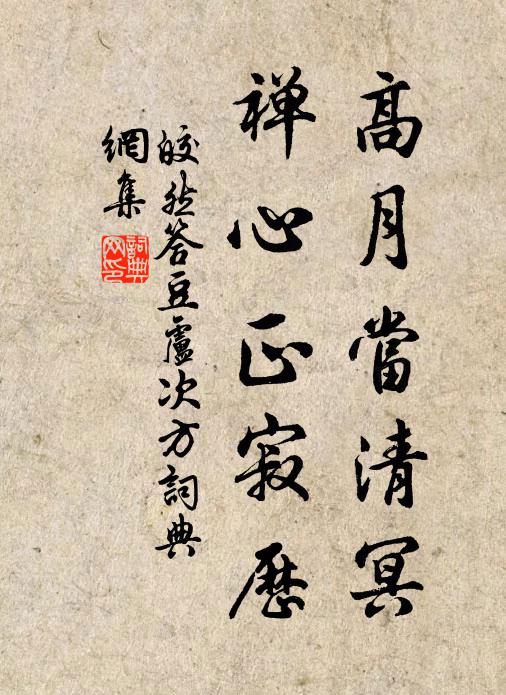 高月當清冥
禅心正寂歷
皎然答豆盧次方詞典
網集
詞典網印